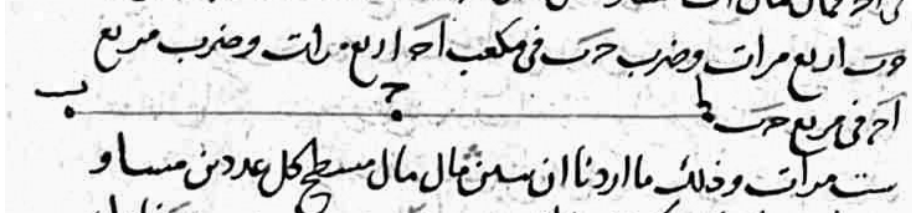 في اج فمال مال
جب اربع مرات وضرب جب في مكعب اج اربع مرات وضرب مربع
اج في مربع جب ا ج ب
ست مرات وذلك ما اردنا ان نبين مال مال مسطح كل عددين مساو